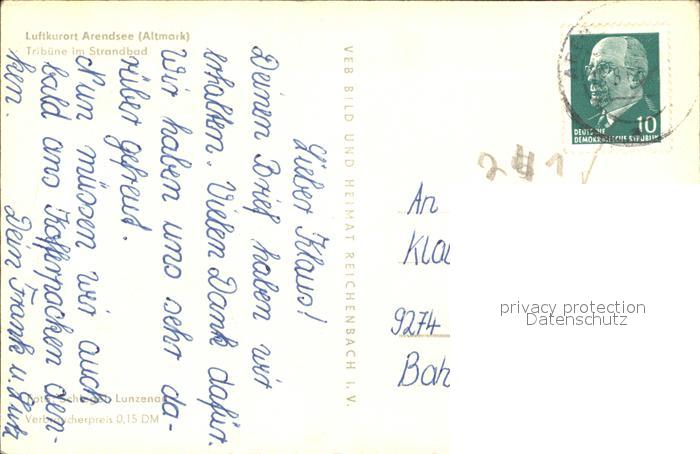 Luftkurort Arendsee (Altmark)
Tribüne im Strandbad
Lieber Klaus!
Deinen Brief haben wir
erhalten. Vielen Dank dafür.
Wir haben uns sehr da-
rüber gefreut.
Nun müssen wir auch
bald ans Kofferpacken den-
ken.
Dein Frank u. Lutz
Lunzenau
Verbraucherpreis 0,15 DM
VEB BILD UND HEIMAT REICHENBACH I. V.
DEUTSCHE
DEMOKRATISCHE REPUBLIK
10
241
An
Kla
9274
Bah
privacy protection
Datenschutz